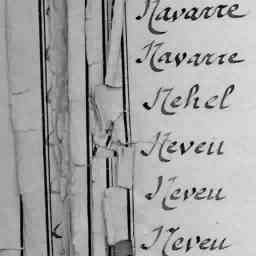 Navarre
Navarre
Nehel
Neveu
Neveu
Neveu